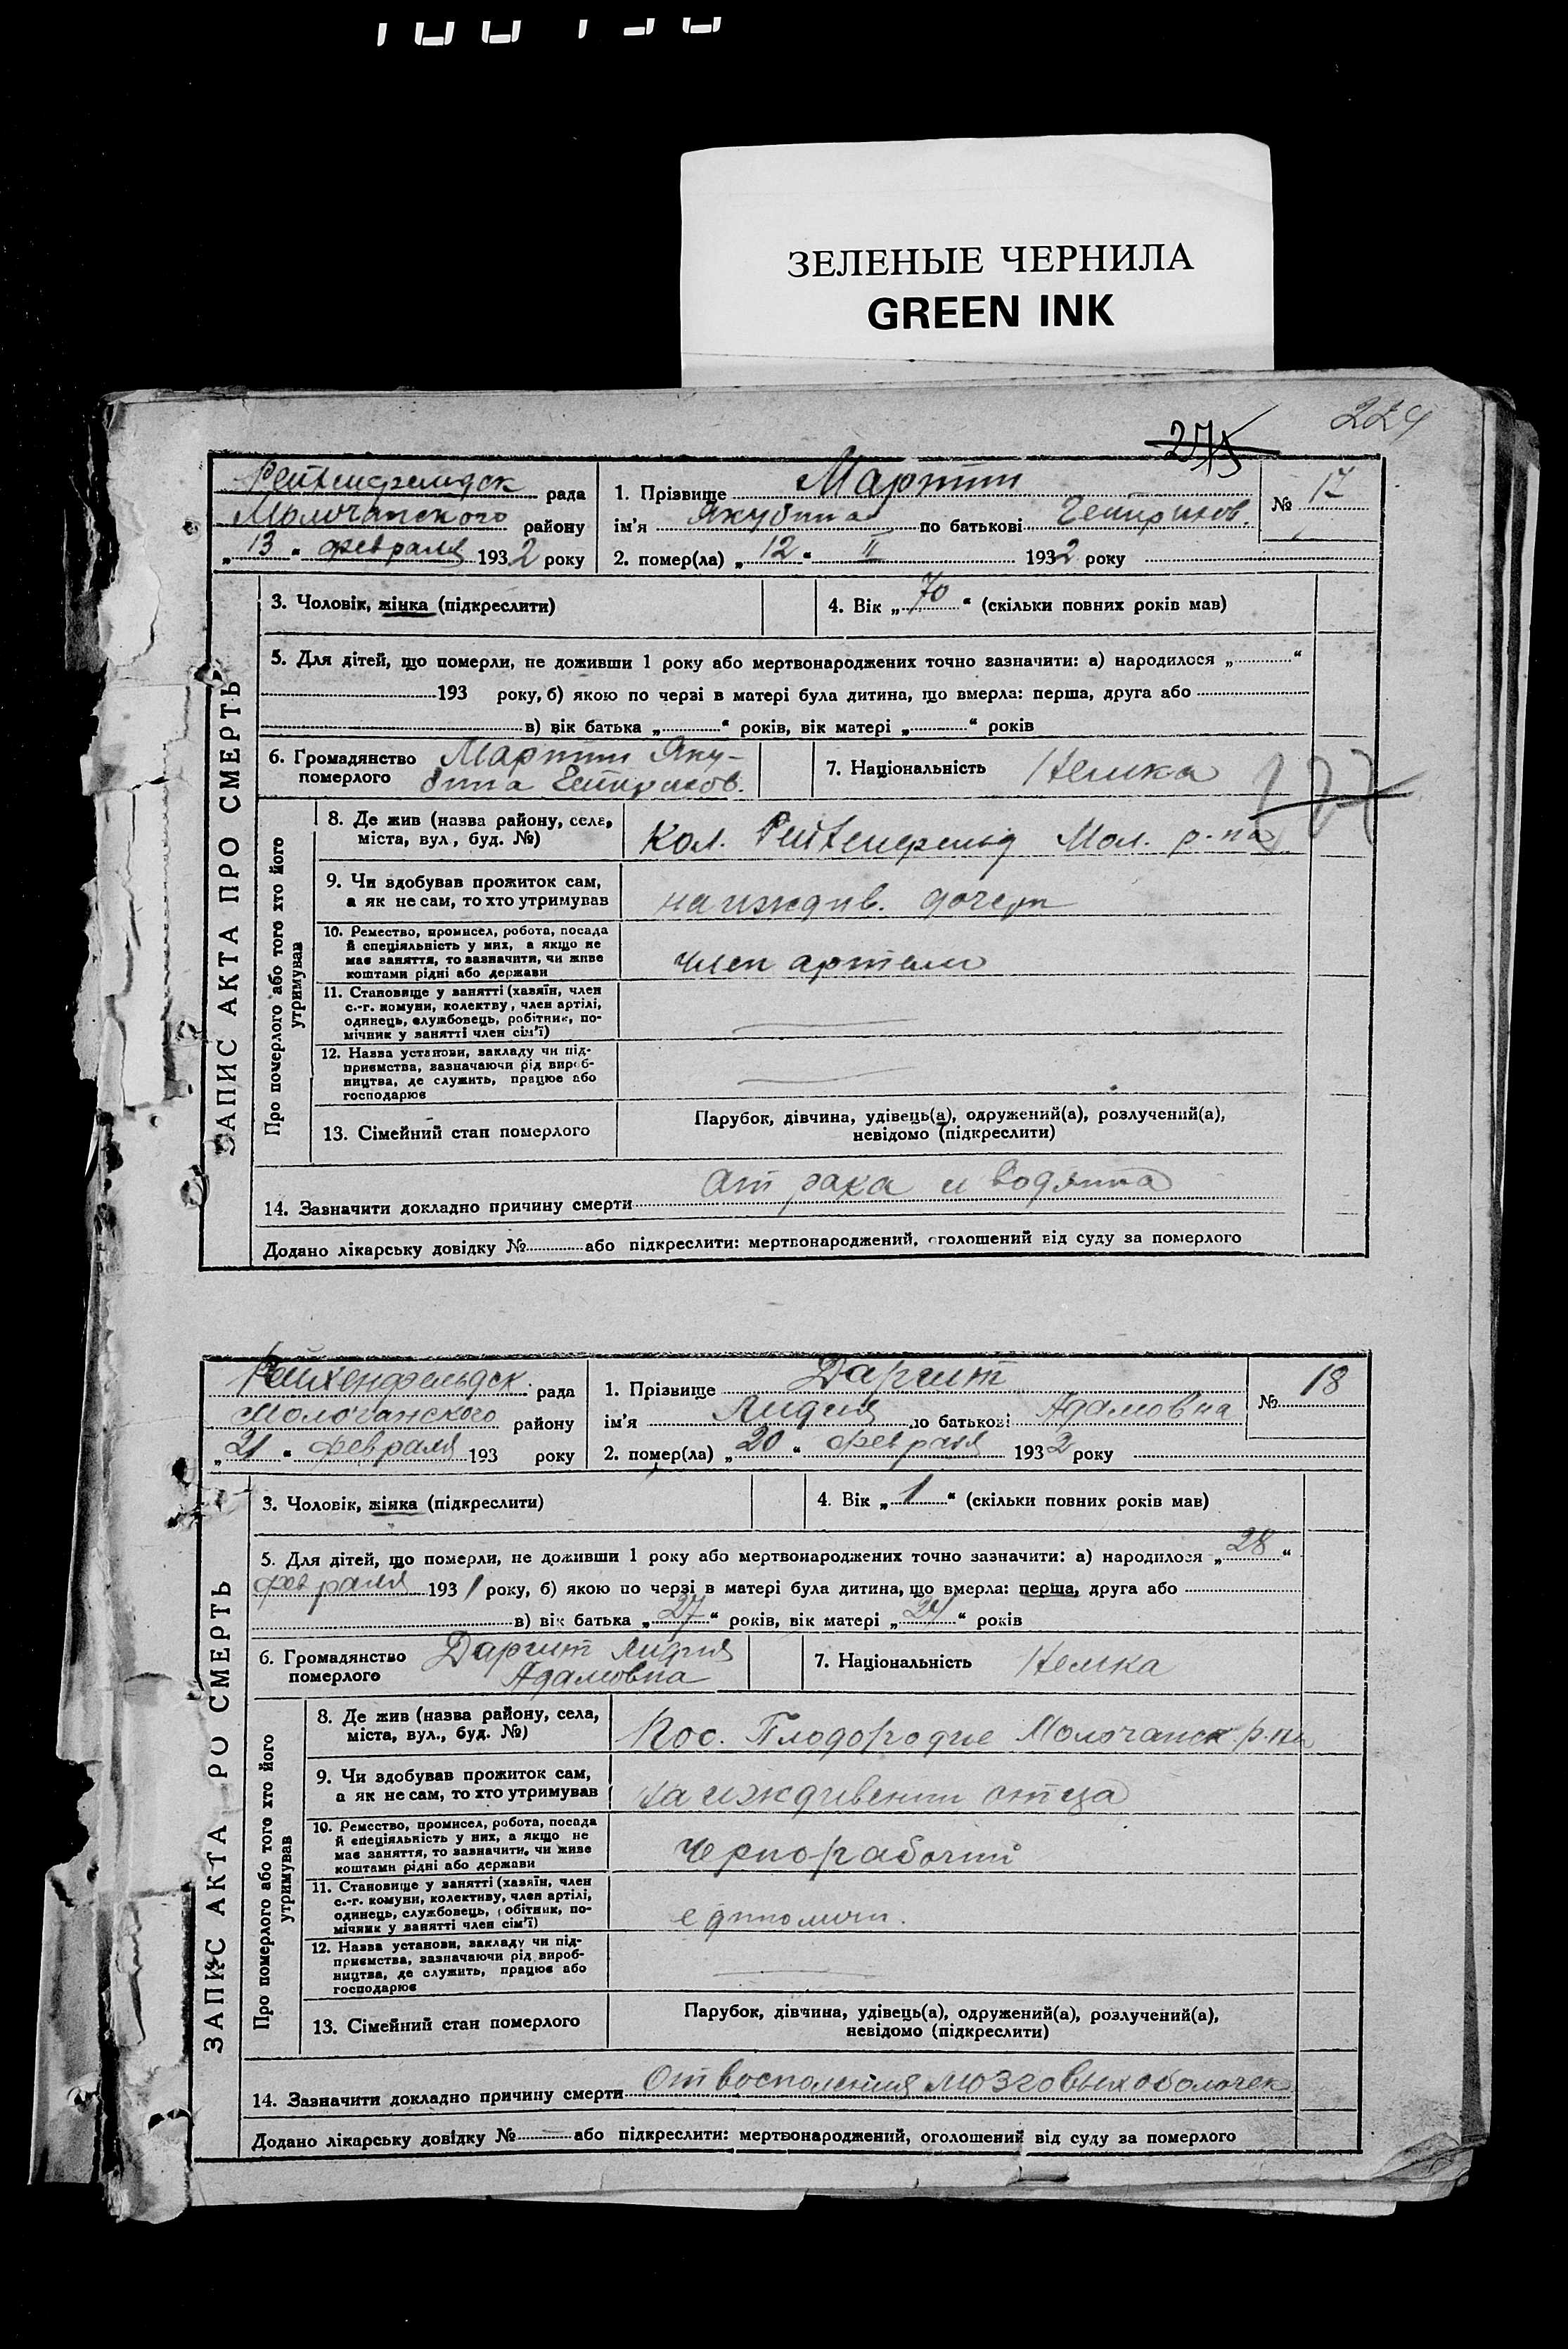 ЗЕЛЕНЫЕ ЧЕРНИЛА
GREEN INK
224
275
ЗАПИС АКТА ПРО СМЕРТЬ
Рейхенфельдск рада
Молочанского району
„13“ февраля 1932 року
1. Прізвище Мартин
ім'я Якубина по батькові Генриков.
2. помер(ла) „12“ II 1932 року
№ 17
3. Чоловік, жінка (підкреслити)
4. Вік „70“ (скільки повних років мав)
5. Для дітей, що померли, не доживши 1 року або мертвонароджених точно зазначити: а) народилося „ “
193 року, б) якою по черзі в матері була дитина, що вмерла: перша, друга або
в) вік батька „ “ років, вік матері „ “ років
6. Громадянство померлого Мартин Яку-
бина Генриков.
7. Національність Немка
177
Про померлого або того хто його утримував
8. Де жив (назва району, села,
міста, вул., буд. №)
Кол. Рейхенфельд Мол. р-на
9. Чи здобував прожиток сам,
а як не сам, то хто утримував
на иждив. дочери
10. Ремество, промисел, робота, посада
й спеціяльність у них, а якщо не
має заняття, то зазначити, чи живе
коштами рідні або держави
член артели
11. Становище у занятті (хазяїн, член
с.-г. комуни, колектву, член артілі,
одинець, службовець, робітник, по-
мічник у занятті член сім'ї)
12. Назва установи, закладу чи під-
приємства, зазначаючи рід вироб-
ництва, де служить, працює або
господарює
13. Сімейний стан померлого
Парубок, дівчина, удівець(а), одружений(а), розлучений(а),
невідомо (підкреслити)
14. Зазначити докладно причину смерти От рака и водянка
Додано лікарську довідку № або підкреслити: мертвонароджений, оголошений від суду за померлого
ЗАПИС АКТА РО СМЕРТЬ
Рейхенфельдск. рада
Молочанского району
„21“ февраля 193 року
1. Прізвище Даргит
ім'я Лидия по батькові Адамовна
2. помер(ла) „20“ февраля 1932 року
№ 18
3. Чоловік, жінка (підкреслити)
4. Вік „1“ (скільки повних років мав)
5. Для дітей, що померли, не доживши 1 року або мертвонароджених точно зазначити: а) народилося „28“
февраля 1931 року, б) якою по черзі в матері була дитина, що вмерла: перша, друга або
в) вік батька „27“ років, вік матері „24“ років
6. Громадянство померлого Даргит Лидия
Адамовна
7. Національність Немка
Про померлого або того хто його утримував
8. Де жив (назва району, села,
міста, вул., буд. №)
Пос. Плодородие Молочанск. р-на
9. Чи здобував прожиток сам,
а як не сам, то хто утримував
На иждивении отца
10. Ремество, промисел, робота, посада
й спеціяльність у них, а якщо не
має заняття, то зазначити, чи живе
коштами рідні або держави
Чернорабочий
11. Становище у занятті (хазяїн, член
с.-г. комуни, колективу, член артілі,
одинець, службовець, робітник, по-
мічник у занятті член сім'ї)
единоличн.
12. Назва установи, закладу чи під-
приємства, зазначаючи рід вироб-
ництва, де служить, працює або
господарює
13. Сімейний стан померлого
Парубок, дівчина, удівець(а), одружений(а), розлучений(а),
невідомо (підкреслити)
14. Зазначити докладно причину смерти От воспаления мозговых оболочек
Додано лікарську довідку № або підкреслити: мертвонароджений, оголошений від суду за померлого